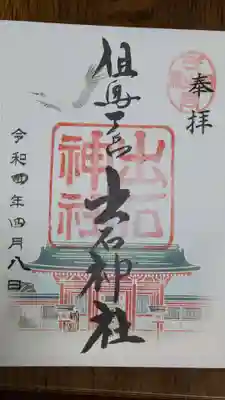 奉拝
但馬一宮出石神社
出石
神社
令和四年四月八日